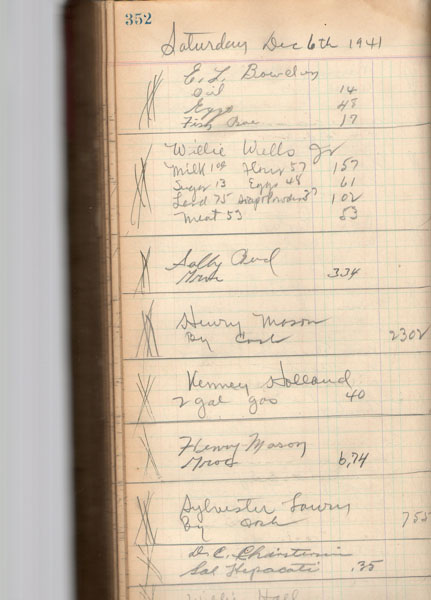 352
Saturday Dec 6th 1941
E. L. Bowden
Oil 14
Eggs 48
Fish 17
Willie Wells Jr
Milk 100 Flour 57 157
Sugar 13 Eggs 48 61
Lard 75 27 102
Meat 53 53
Sally
334
Henry Mason
By Cash 2302
Kenney Holland
2 gal gas 40
Henry Mason
Groc 6,74
Sylvester Lowry
By Cash 755
Dr. C.
Sal Hepacati .35
Willie Hall